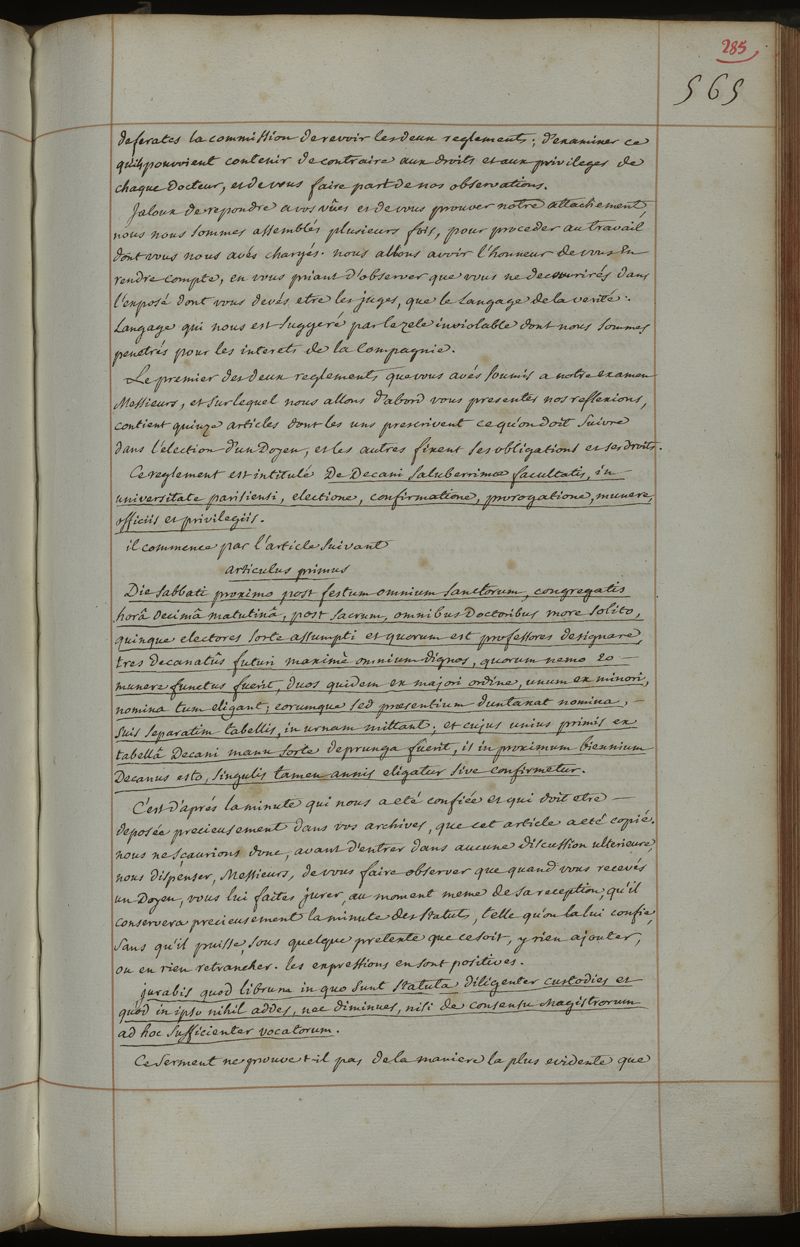 285
565
deferates la commission de revoir les deux reglements; d'examiner ce
qu'ils pouvoient contenir de contraire aux droits et aux privileges de
chaque Docteur, et de vous faire part de nos observations.
Jaloux de repondre a vos vûes et de vous prouver notre attachement,
nous nous sommes assemblés plusieurs fois, pour proceder au travail
dont vous nous avés chargés. nous allons avoir l'honneur de vous en
rendre compte, en vous priant d'observer que vous ne decouvrirés dans
l'exposé dont vous devés etre les juges, que le Langage de la verité:
Langage qui nous est suggeré par le zele inviolable dont nous sommes
penetrés pour les interets de la Compagnie.
Le premier des deux reglements que vous avés soumis a notre examen
Messieurs, et sur lequel nous allons d'abord vous presenter nos reflexions,
contient quinze articles dont les uns prescrivent ce qu'on doit suivre
dans l'election d'un Doyen, et les autres fixent ses obligations et ses droits.
Ce reglement est intitulé De Decani saluberrimæ facultatis, in
universitate parisiensi, electione, confirmatione, prorogatione, munere,
officiis et privilegiis.
il commence par l'article suivant
articulus primus
Die sabbati proximo post festum omnium sanctorum, congregatis
horâ decimâ matutinâ, post sacrum, omnibus Doctoribus more solito,
quinque electores sorte assumpti et quorum est professores designare,
tres decanatûs futuri maximè omnium dignos, quorum nemo eo
munere functus fuerit, duos quidem ex majori ordine, unum ex minori,
nomina tum eligant; eorumque sed præsentium duntaxat nomina,
suis separatim tabellis, in urnam mittant; et cujus unius primis ex
tabellâ Decani manu sorte deprunga fuerit, is in proximum biennium
Decanus esto, singulis tamen annis eligatur sive confirmetur.
C'est d'aprés la minute qui nous a eté confiée et qui doit etre
deposée precieusement dans vos archives, que cet article a eté copié.
nous ne sçaurions donc, avant d'entrer dans aucune discussion ulterieure,
nous dispenser, Messieurs, de vous faire observer que quand vous recevés
un Doyen, vous lui faites jurer, au moment meme de sa reception, qu'il
conservera precieusement la minute des statuts, telle qu'on la lui confie,
sans qu'il puisse, sous quelque pretexte que ce soit, y rien ajouter,
ou en rien retrancher. les expressions en sont positives.
jurabis quod librum in quo sunt statuta diligenter custodies et
quòd in ipso nihil addes, nec diminues, nisi de consensu Magistrorum
ad hoc sufficienter vocatorum.
Ce serment ne prouve t-il pas de la maniere la plus evidente que